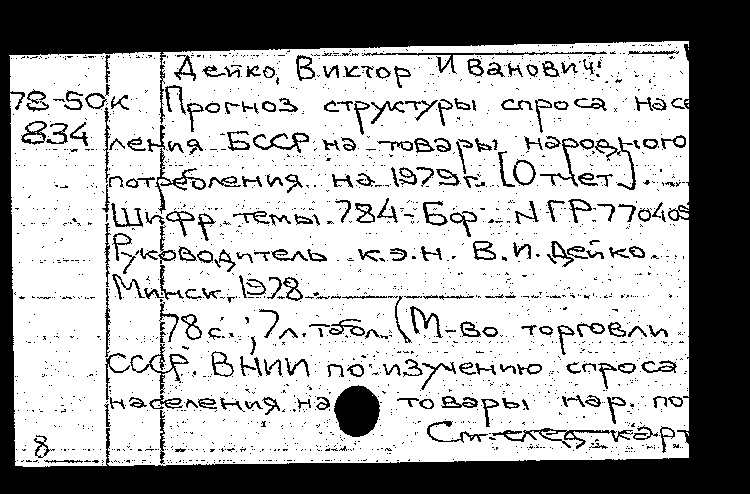 Дейко, Виктор Иванович.
78-50к Прогноз структуры спроса насе
834 ления БССР на товары народного
потребления на 1979г. [Отчет].
Шифр темы 784-Бф. №ГР 770409
Руководитель к.э.н. В.И. Дейко.
Минск, 1978.
78с.; 7л.табл. (М-во торговли
СССР. ВНИИ по изучению спроса
населения на товары нар. по
См. след. карт
8